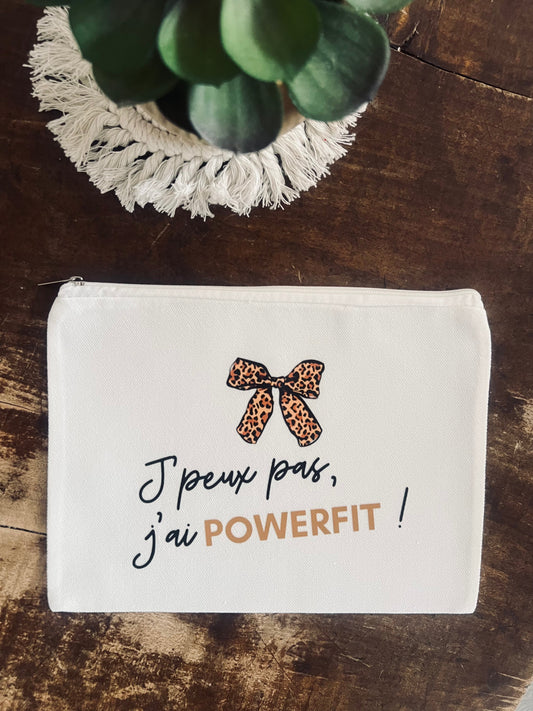 J'peux pas,
j'ai POWERFIT !